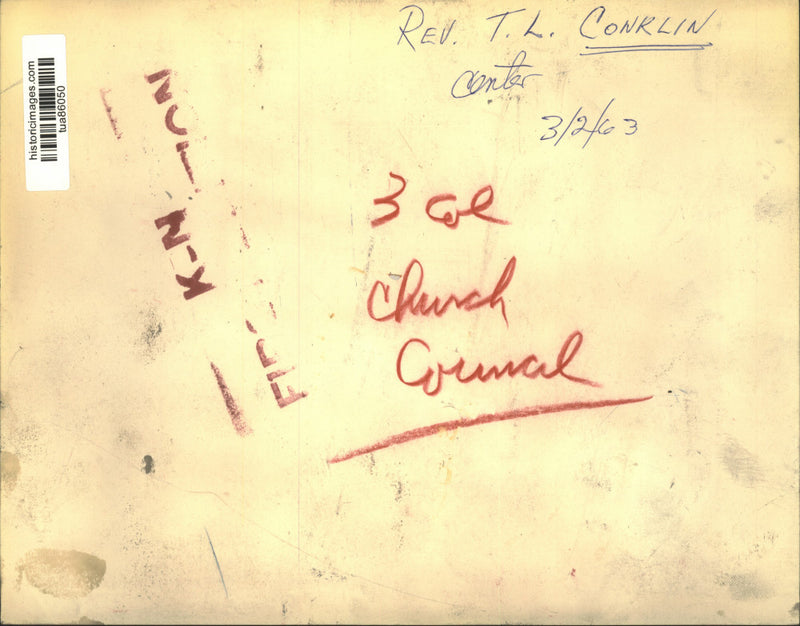 historicimages.com
tua86050
REV. T. L. CONKLIN
center
3/2/63
3 col
Church
Council